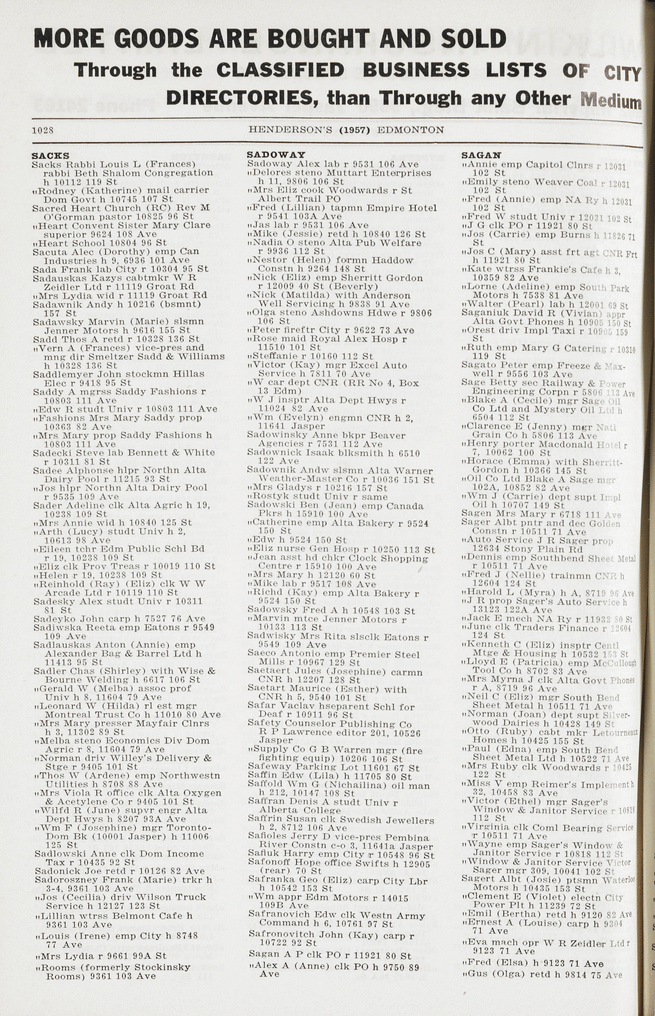 MORE GOODS ARE BOUGHT AND SOLD
Through the CLASSIFIED BUSINESS LISTS OF CITY
DIRECTORIES, than Through any Other Medium
1028 HENDERSON'S (1957) EDMONTON
SACKS
Sacks Rabbi Louis L (Frances)
rabbi Beth Shalom Congregation
h 10112 119 St
„Rodney (Katherine) mail carrier
Dom Govt h 10745 107 St
Sacred Heart Church (RC) Rev M
O'Gorman pastor 10825 96 St
„Heart Convent Sister Mary Clare
superior 9624 108 Ave
„Heart School 10804 96 St
Sacuta Alec (Dorothy) emp Can
Industries h 9, 6936 101 Ave
Sada Frank lab City r 10304 95 St
Sadauskas Kazys cabtmkr W R
Zeidler Ltd r 11119 Groat Rd
„Mrs Lydia wid r 11119 Groat Rd
Sadawnik Andy h 10216 (bsmnt)
157 St
Sadawsky Marvin (Marie) slsmn
Jenner Motors h 9616 155 St
Sadd Thos A retd r 10328 136 St
„Vern A (Frances) vice-pres and
mng dir Smeltzer Sadd & Williams
h 10328 136 St
Saddlemyer John stockmn Hillas
Elec r 9418 95 St
Saddy A mgrss Saddy Fashions r
10803 111 Ave
„Edw R studt Univ r 10803 111 Ave
„Fashions Mrs Mary Saddy prop
10363 82 Ave
„Mrs Mary prop Saddy Fashions h
10803 111 Ave
Sadecki Steve lab Bennett & White
r 10311 81 St
Sadee Alphonse hlpr Northn Alta
Dairy Pool r 11215 93 St
„Jos hlpr Northn Alta Dairy Pool
r 9535 109 Ave
Sader Adeline clk Alta Agric h 19,
10238 109 St
„Mrs Annie wid h 10840 125 St
„Arth (Lucy) studt Univ h 2,
10613 98 Ave
„Eileen tchr Edm Public Schl Bd
r 19, 10238 109 St
„Eliz clk Prov Treas r 10019 110 St
„Helen r 19, 10238 109 St
„Reinhold (Ray) (Eliz) clk W W
Arcade Ltd r 10119 110 St
Sadesky Alex studt Univ r 10311
81 St
Sadeyko John carp h 7527 76 Ave
Sadiwska Reeta emp Eatons r 9549
109 Ave
Sadlauskas Anton (Annie) emp
Alexander Bag & Barrel Ltd h
11413 95 St
Sadler Chas (Shirley) with Wise &
Bourne Welding h 6617 106 St
„Gerald W (Melba) assoc prof
Univ h 8, 11604 79 Ave
„Leonard W (Hilda) rl est mgr
Montreal Trust Co h 11010 80 Ave
„Mrs Mary presser Mayfair Clnrs
h 3, 11302 89 St
„Melba steno Economics Div Dom
Agric r 8, 11604 79 Ave
„Norman driv Willey's Delivery &
Stge r 9405 101 St
„Thos W (Ardene) emp Northwestn
Utilities h 8708 88 Ave
„Mrs Viola R office clk Alta Oxygen
& Acetylene Co r 9405 101 St
„Wilfd R (June) supvr engr Alta
Dept Hwys h 8207 93A Ave
„Wm F (Josephine) mgr Toronto-
Dom Bk (10001 Jasper) h 11006
125 St
Sadlowski Anne clk Dom Income
Tax r 10435 92 St
Sadonick Joe retd r 10126 82 Ave
Sadoroszney Frank (Marie) trkr h
3-4, 9361 103 Ave
„Jos (Cecilia) driv Wilson Truck
Service h 12127 123 St
„Lillian wtrss Belmont Cafe h
9361 103 Ave
„Louis (Irene) emp City h 8748
77 Ave
„Mrs Lydia r 9661 99A St
„Rooms (formerly Stockinsky
Rooms) 9361 103 Ave
SADOWAY
Sadoway Alex lab r 9531 106 Ave
„Delores steno Muttart Enterprises
h 11, 9806 106 St
„Mrs Eliz cook Woodwards r St
Albert Trail PO
„Fred (Lillian) tapmn Empire Hotel
r 9541 103A Ave
„Jas lab r 9531 106 Ave
„Mike (Jessie) retd h 10840 126 St
„Nadia O steno Alta Pub Welfare
r 9936 112 St
„Nestor (Helen) formn Haddow
Constn h 9264 148 St
„Nick (Eliz) emp Sherritt Gordon
r 12009 40 St (Beverly)
„Nick (Matilda) with Anderson
Well Servicing h 9838 91 Ave
„Olga steno Ashdowns Hdwe r 9806
106 St
„Peter fireftr City r 9622 73 Ave
„Rose maid Royal Alex Hosp r
11510 101 St
„Steffanie r 10160 112 St
„Victor (Kay) mgr Excel Auto
Service h 7811 70 Ave
„W car dept CNR (RR No 4, Box
13 Edm)
„W J insptr Alta Dept Hwys r
11024 82 Ave
„Wm (Evelyn) engmn CNR h 2,
11641 Jasper
Sadowinsky Anne bkpr Beaver
Agencies r 7531 112 Ave
Sadownick Isaak blksmith h 6510
122 Ave
Sadownik Andw slsmn Alta Warner
Weather-Master Co r 10036 151 St
„Mrs Gladys r 10216 157 St
„Rostyk studt Univ r same
Sadowski Ben (Jean) emp Canada
Pkrs h 15910 100 Ave
„Catherine emp Alta Bakery r 9524
150 St
„Edw h 9524 150 St
„Eliz nurse Gen Hosp r 10250 113 St
„Jean asst hd chkr Clock Shopping
Centre r 15910 100 Ave
„Mrs Mary h 12120 60 St
„Mike lab r 9517 108 Ave
„Richd (Kay) emp Alta Bakery r
9524 150 St
Sadowsky Fred A h 10548 103 St
„Marvin mtce Jenner Motors r
10133 113 St
Sadwisky Mrs Rita slsclk Eatons r
9549 109 Ave
Saeco Antonio emp Premier Steel
Mills r 10967 129 St
Saetaert Jules (Josephine) carmn
CNR h 12207 128 St
Saetart Maurice (Esther) with
CNR h 5, 9540 101 St
Safar Vaclav hseparent Schl for
Deaf r 10911 96 St
Safety Counselor Publishing Co
R P Lawrence editor 201, 10526
Jasper
„Supply Co G B Warren mgr (fire
fighting equip) 10206 106 St
Safeway Parking Lot 11601 67 St
Saffin Edw (Lila) h 11705 80 St
Saffold Wm G (Nichailina) oil man
h 212, 10147 108 St
Saffran Denis A studt Univ r
Alberta College
Saffrin Susan clk Swedish Jewellers
h 2, 8712 106 Ave
Safioles Jerry D vice-pres Pembina
River Constn c-o 3, 11641a Jasper
Safiuk Harry emp City r 10548 96 St
Safonoff Hope office Swifts h 12905
(rear) 70 St
Safranka Geo (Eliz) carp City Lbr
h 10542 153 St
„Wm appr Edm Motors r 14015
109B Ave
Safranovich Edw clk Westn Army
Command h 6, 10761 97 St
Safronovitch John (Kay) carp r
10722 92 St
Sagan A P clk PO r 11921 80 St
„Alex A (Anne) clk PO h 9750 89
Ave
SAGAN
„Annie emp Capitol Clnrs r 12031
102 St
„Emily steno Weaver Coal r 12031
102 St
„Fred (Annie) emp NA Ry h 12031
102 St
„Fred W studt Univ r 12031 102 St
„J G clk PO r 11921 80 St
„Jos (Carrie) emp Burns h 11826 71
St
„Jos C (Mary) asst frt agt CNR Frt
h 11921 80 St
„Kate wtrss Frankie's Cafe h 3,
10359 82 Ave
„Lorne (Adeline) emp South Park
Motors h 7538 81 Ave
„Walter (Pearl) lab h 12001 69 St
Saganiuk David R (Vivian) appr
Alta Govt Phones h 10905 150 St
„Orest driv Impl Taxi r 10905 159
St
„Ruth emp Mary G Catering r 10310
119 St
Sagato Peter emp Freeze & Max-
well r 9556 103 Ave
Sage Betty sec Railway & Power
Engineering Corpn r 5806 113 Ave
„Blake A (Cecile) mgr Sage Oil
Co Ltd and Mystery Oil Ltd h
6504 112 St
„Clarence E (Jenny) mgr Natl
Grain Co h 5806 113 Ave
„Henry porter Macdonald Hotel r
7, 10062 100 St
„Horace (Emma) with Sherritt-
Gordon h 10366 145 St
„Oil Co Ltd Blake A Sage mgr
102A, 10852 82 Ave
„Wm J (Carrie) dept supt Impl
Oil h 10707 149 St
Sagen Mrs Mary r 6718 111 Ave
Sager Albt pntr and dec Golden
Constn r 10511 71 Ave
„Auto Service J R Sager prop
12634 Stony Plain Rd
„Dennis emp Southbend Sheet Metal
r 10511 71 Ave
„Fred J (Nellie) trainmn CNR h
12604 124 St
„Harold L (Myra) h A, 8719 96 Ave
„J R prop Sager's Auto Service h
13123 122A Ave
„Jack E mech NA Ry r 11932 80 St
„June clk Traders Finance r 12604
124 St
„Kenneth C (Eliz) insptr Centl
Mtge & Housing h 10532 153 St
„Lloyd E (Patricia) emp McCullough
Tool Co h 8702 83 Ave
„Mrs Myrna J clk Alta Govt Phones
r A, 8719 96 Ave
„Neil C (Eliz) mgr South Bend
Sheet Metal h 10511 71 Ave
„Norman (Joan) dept supt Silver-
wood Dairies h 10428 149 St
„Otto (Ruby) cabt mkr Letourneau
Homes h 10425 155 St
„Paul (Edna) emp South Bend
Sheet Metal Ltd h 10522 71 Ave
„Mrs Ruby clk Woodwards r 10425
122 St
„Miss V emp Reimer's Implement h
32, 10458 83 Ave
„Victor (Ethel) mgr Sager's
Window & Janitor Service r 10818
112 St
„Virginia clk Coml Bearing Service
r 10511 71 Ave
„Wayne emp Sager's Window &
Janitor Service r 10818 112 St
„Window & Janitor Service Victor
Sager mgr 309, 10041 102 St
Sagert Albt (Josie) ptsmn Waterloo
Motors h 10435 153 St
„Clement E (Violet) electn City
Power Plt h 11239 72 St
„Emil (Bertha) retd h 9120 82 Ave
„Ernest A (Louise) carp h 9304
71 Ave
„Eva mach opr W R Zeidler Ltd r
9123 71 Ave
„Fred (Elsa) h 9123 71 Ave
„Gus (Olga) retd h 9814 75 Ave